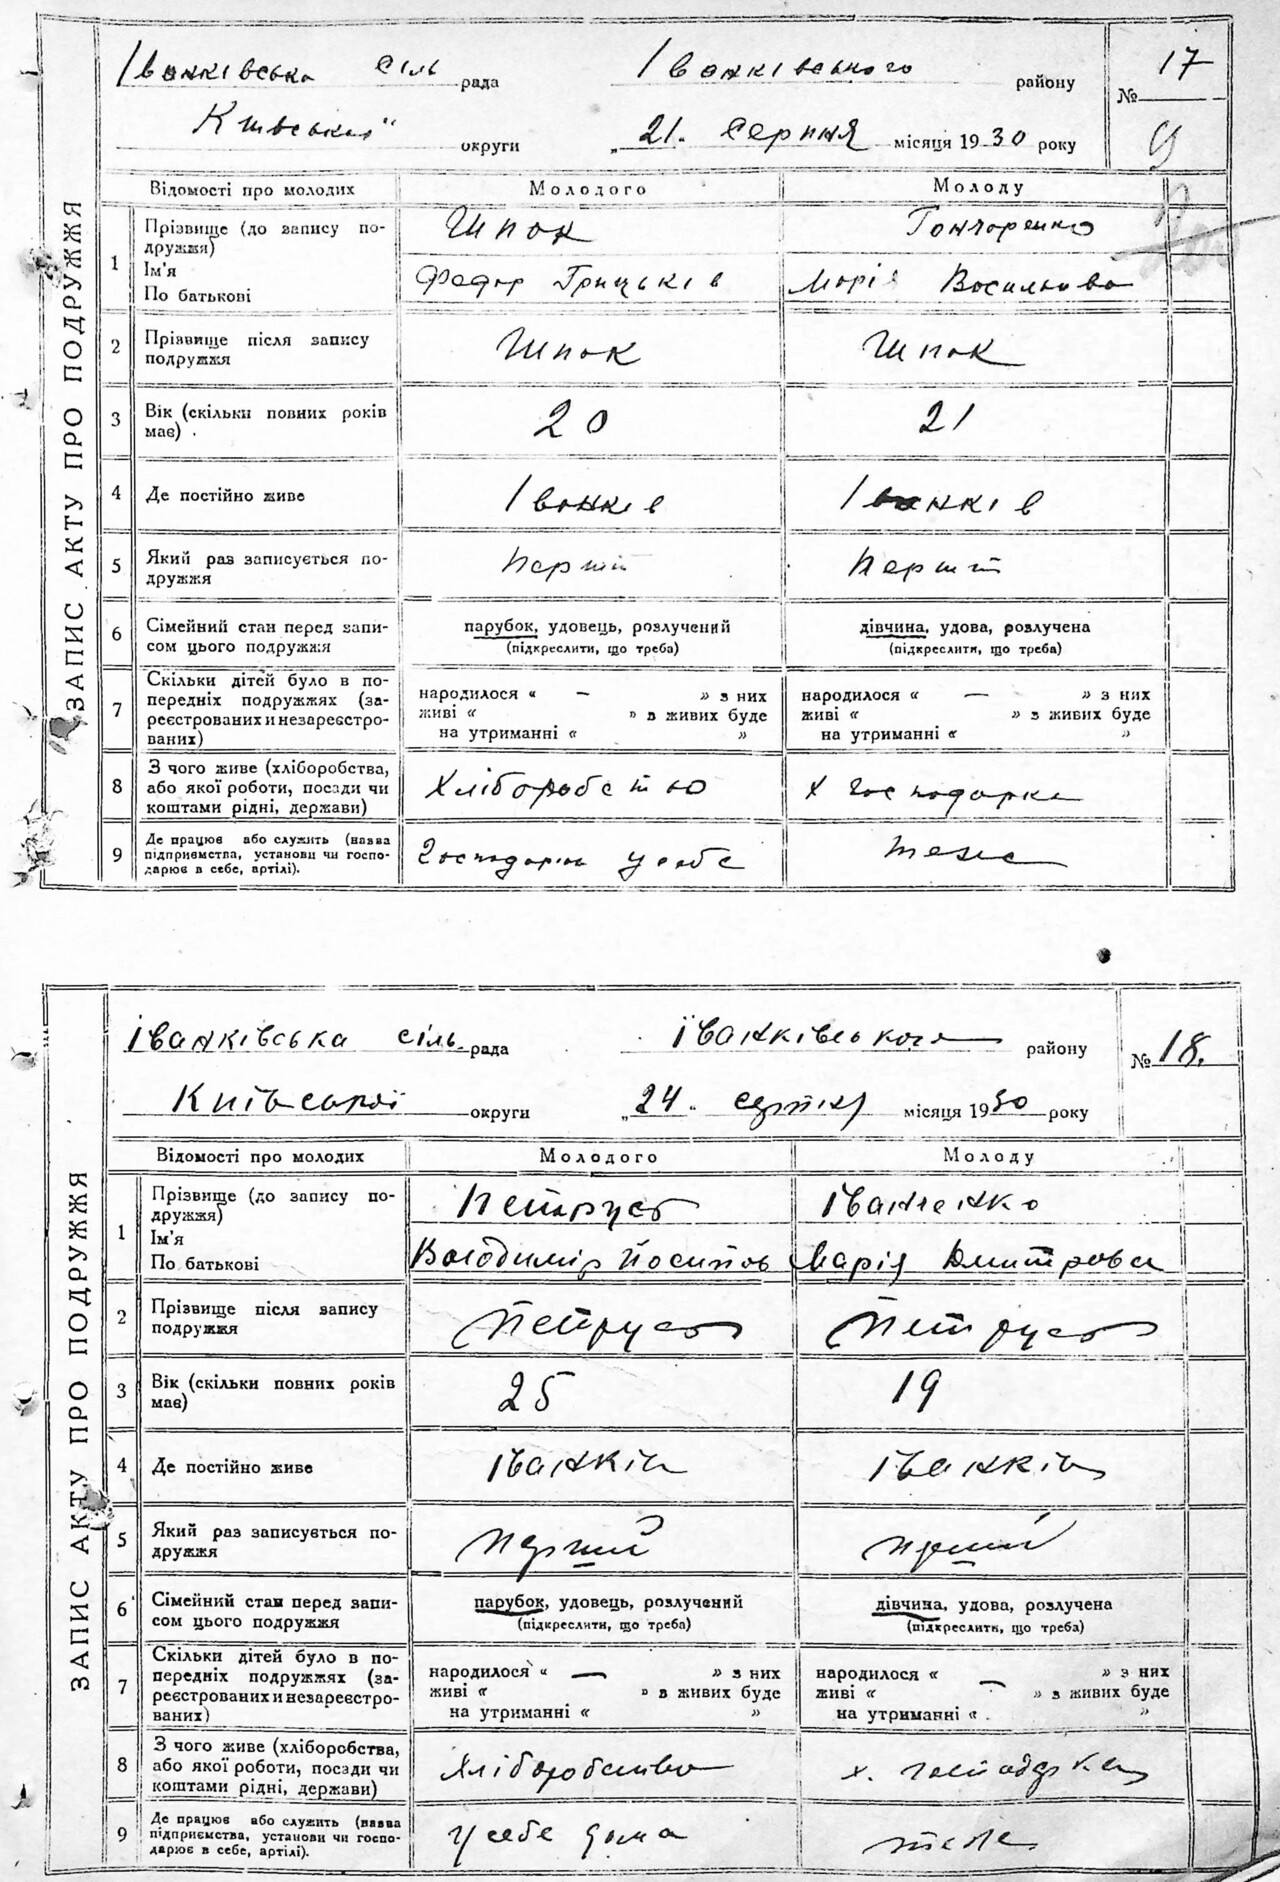 ЗАПИС АКТУ ПРО ПОДРУЖЖЯ
Іванківська сіль рада Іванківського району № 17
Київської округи „21. Серпня місяця 1930 року
Відомості про молодих Молодого Молоду
1 Прізвище (до запису по-
дружжя) Шпак Гончаренко
Ім'я
По батькові Федор Грицьків Марія Василькова
2 Прізвище після запису
подружжя Шпак Шпак
3 Вік (скільки повних років
має) 20 21
4 Де постійно живе Іванків Іванків
5 Який раз записується по-
дружжя Перший Перший
6 Сімейний стан перед запи-
сом цього подружжя
парубок, удовець, розлучений дівчина, удова, розлучена
(підкреслити, що треба) (підкреслити, що треба)
7 Скільки дітей було в по-
передніх подружжях (за-
реєстрованих и незареєстро-
ваних)
народилося « — » з них народилося « — » з них
живі « » в живих буде живі « » з живих буде
на утриманні « » на утриманні « »
8 З чого живе (хліборобства,
або якої роботи, посади чи
коштами рідні, держави) Хліборобстю х господарка
9 Де працює або служить (назва
підприємства, установи чи госпо-
дарює в себе, артілі). у себе теж
ЗАПИС АКТУ ПРО ПОДРУЖЖЯ
Іванківська сіль. рада Іванківського району № 18.
Київської округи „24. серпня місяця 1930 року
Відомості про молодих Молодого Молоду
1 Прізвище (до запису по-
дружжя) Петрусь Іваненко
Ім'я
По батькові Володимір Йосипов Марія Дмитрова
2 Прізвище після запису
подружжя Петрусь Петрусь
3 Вік (скільки повних років
має) 25 19
4 Де постійно живе Іванків Іванків
5 Який раз записується по-
дружжя Перший Перший
6 Сімейний стан перед запи-
сом цього подружжя
парубок, удовець, розлучений дівчина, удова, розлучена
(підкреслити, що треба) (підкреслити, що треба)
7 Скільки дітей було в по-
передніх подружжях (за-
реєстрованих и незареєстро-
ваних)
народилося « — » з них народилося « — » з них
живі « » в живих буде живі « » з живих буде
на утриманні « » на утриманні « »
8 З чого живе (хліборобства,
або якої роботи, посади чи
коштами рідні, держави) Хліборобство х. господарка
9 Де працює або служить (назва
підприємства, установи чи госпо-
дарює в себе, артілі). у себе дома теж